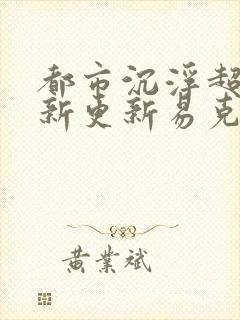 都市沉浮超
新更新易克
黄业斌